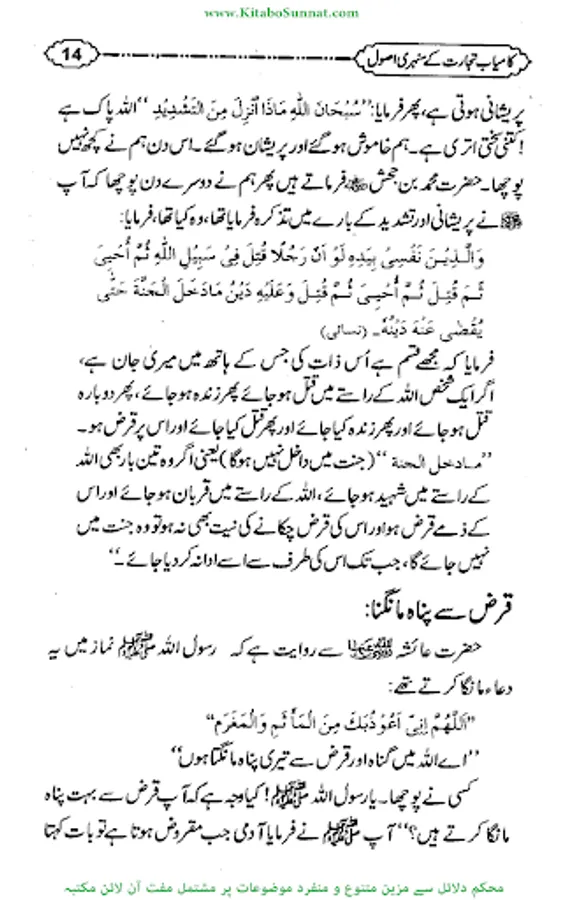 www.KitaboSunnat.com
14
کامیاب تجارت کے سنہری اصول
پریشانی ہوتی ہے، پھر فرمایا: ”سُبْحَانَ اللهِ مَاذَا اُنْزِلَ مِنَ التَّشْدِيْدِ “اللہ پاک ہے
! کتنی سختی اتری ہے۔ ہم خاموش ہو گئے اور پریشان ہو گئے۔ اس دن ہم نے کچھ نہیں
پوچھا۔ حضرت محمد بن جحش ؓ فرماتے ہیں پھر ہم نے دوسرے دن پوچھا کہ آپ
ﷺ نے پریشانی اور تشدید کے بارے میں تذکرہ فرمایا تھا، وہ کیا تھا، فرمایا:
وَالَّذِيْنَ نَفْسِىْ بِيَدِهٖ لَوْ اَنَّ رَجُلًا قُتِلَ فِىْ سَبِيْلِ اللهِ ثُمَّ اُحْيِىَ
ثُمَّ قُتِلَ ثُمَّ اُحْيِىَ ثُمَّ قُتِلَ وَعَلَيْهِ دَيْنٌ مَادَخَلَ الْجَنَّةَ حَتّٰى
يُقْضٰى عَنْهُ دَيْنُهٗ۔ (نسائی)
فرمایا کہ مجھے قسم ہے اُس ذات کی جس کے ہاتھ میں میری جان ہے،
اگر ایک شخص اللہ کے راستے میں قتل ہو جائے پھر زندہ ہو جائے، پھر دوبارہ
قتل ہو جائے اور پھر زندہ کیا جائے اور پھر قتل کیا جائے اور اس پر قرض ہو۔
”مادخل الجنة “ (جنت میں داخل نہیں ہوگا) یعنی اگر وہ تین بار بھی اللہ
کے راستے میں شہید ہو جائے، اللہ کے راستے میں قربان ہو جائے اور اس
کے ذمے قرض ہو اور اس کی قرض چکانے کی نیت بھی نہ ہو تو وہ جنت میں
نہیں جائے گا، جب تک اس کی طرف سے اسے ادا نہ کر دیا جائے۔“
قرض سے پناہ مانگنا:
حضرت عائشہ ؓ سے روایت ہے کہ رسول اللہ ﷺ نماز میں یہ
دعاء مانگا کرتے تھے:
”اَللّٰهُمَّ اِنِّىْ اَعُوْذُبِكَ مِنَ الْمَأْثَمِ وَالْمَغْرَمِ“
”اے اللہ میں گناہ اور قرض سے تیری پناہ مانگتا ہوں“
کسی نے پوچھا۔ یا رسول اللہ ﷺ! کیا وجہ ہے کہ آپ قرض سے بہت پناہ
مانگا کرتے ہیں؟“ آپ ﷺ نے فرمایا آدمی جب مقروض ہوتا ہے تو بات کہتا
محکم دلائل سے مزین متنوع و منفرد موضوعات پر مشتمل مفت آن لائن مکتبہ